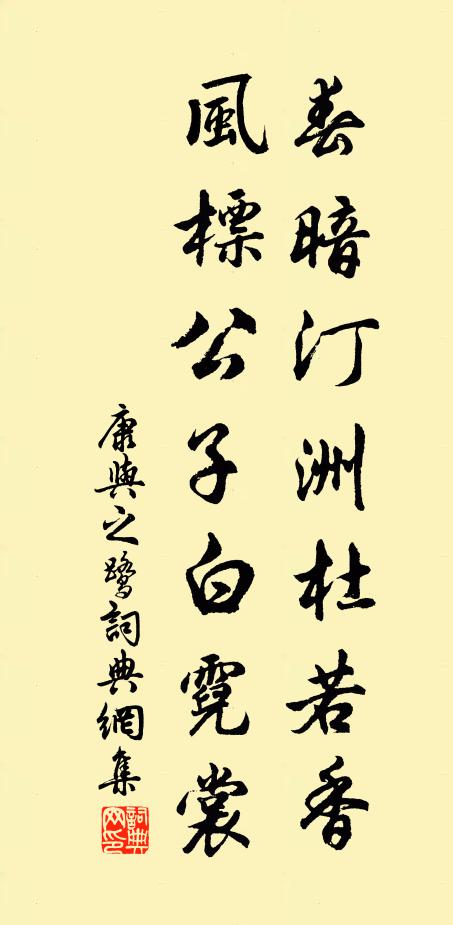 春暗汀洲杜若香
風標公子白霓裳
康與之鷺詞典網集
詞典
网印